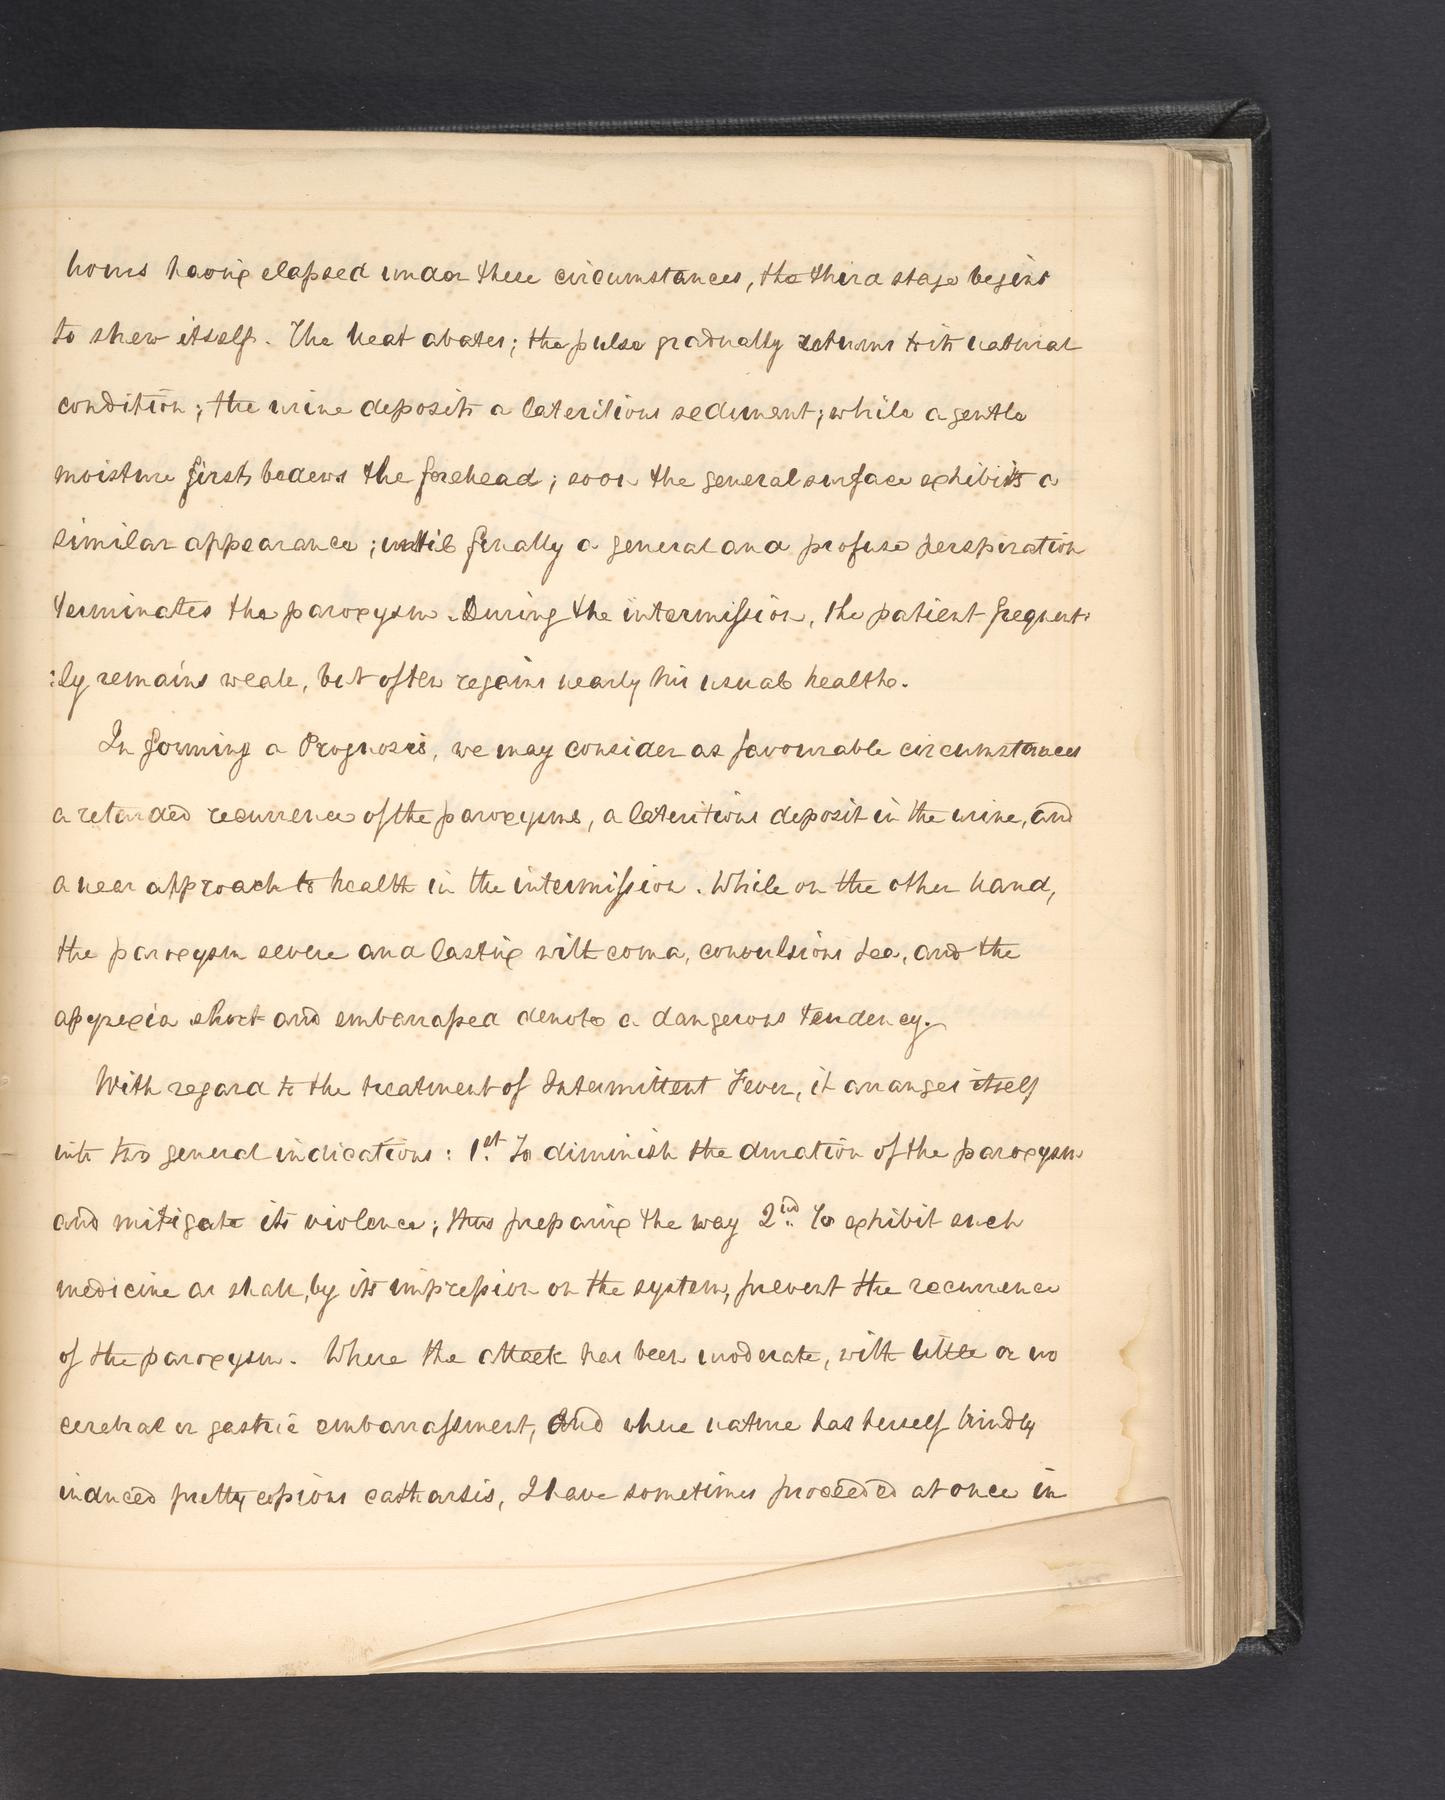 hours having elapsed under these circumstances, the third stage begins
to shew itself. The heat abates; the pulse gradually returns to its natural
condition; the urine deposits a lateritious sediment; while a gentle
moisture first bedews the forehead; soon the general surface exhibits a
similar appearance; until finally a general and profuse perspiration
terminates the paroxysm. During the intermission, the patient frequent:
:ly remains weak, but often regains nearly his usual health.
In forming a Prognosis, we may consider as favourable circumstances
a retarded recurrence of the paroxysms, a lateritious deposit in the urine, and
a near approach to health in the intermission. While on the other hand,
the paroxysm severe and lasting with coma, convulsions &ca, and the
apyrexia short and embarrassed denote a dangerous tendency.
With regard to the treatment of Intermittent Fever, it arranges itself
into two general indications: 1st. To diminish the duration of the paroxysm
and mitigate its violence; thus preparing the way 2nd. To exhibit such
medicine as shall, by its impression on the system, prevent the recurrence
of the paroxysm. Where the attack has been moderate, with little or no
cerebral or gastric embarrassment, and where nature has herself kindly
induced pretty copious catharsis, I have sometimes proceeded at once in